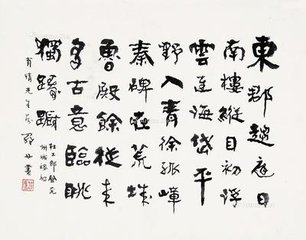 東郡趨庭日
南樓縱目初浮
雲連海岱平
野入青徐孤嶂
秦碑在荒城
魯殿餘從來
多古意臨眺
獨躊躇
杜工部登兗
州城樓